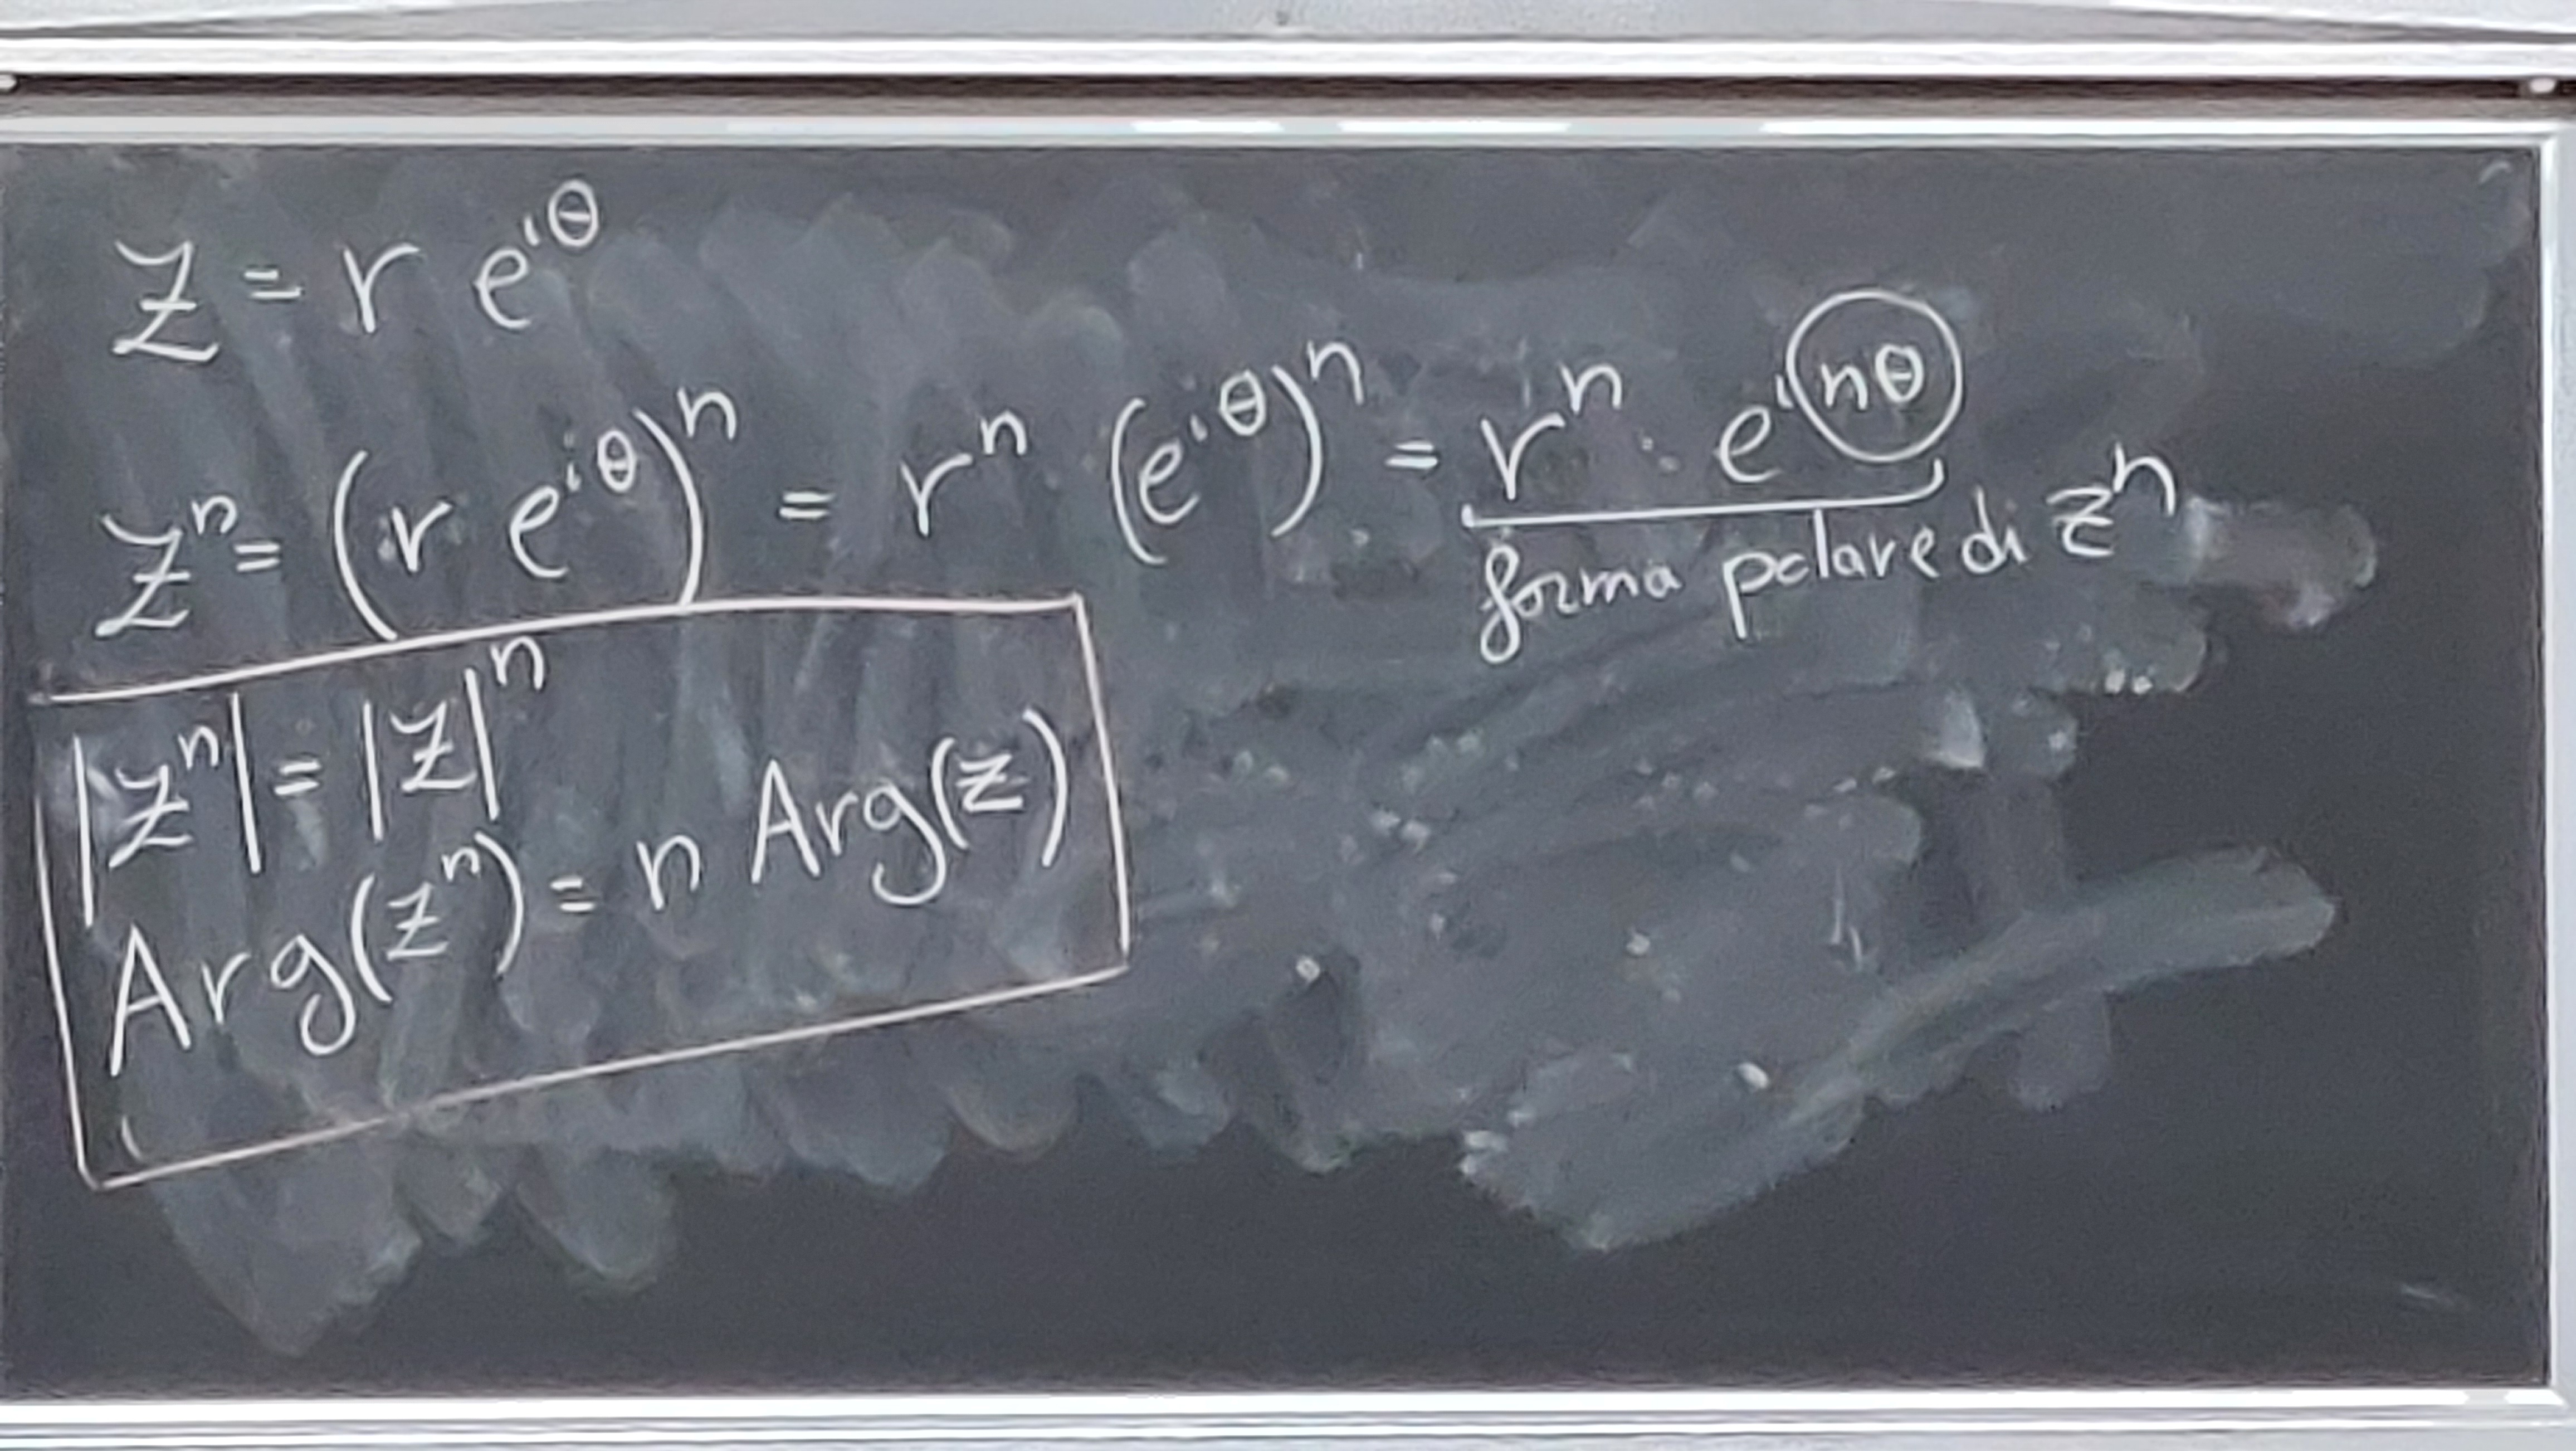 z = r e^{iθ}
z^n = (r e^{iθ})^n = r^n (e^{iθ})^n = r^n · e^{i nθ}
forma polare di z^n
|z^n| = |z|^n
Arg(z^n) = n Arg(z)